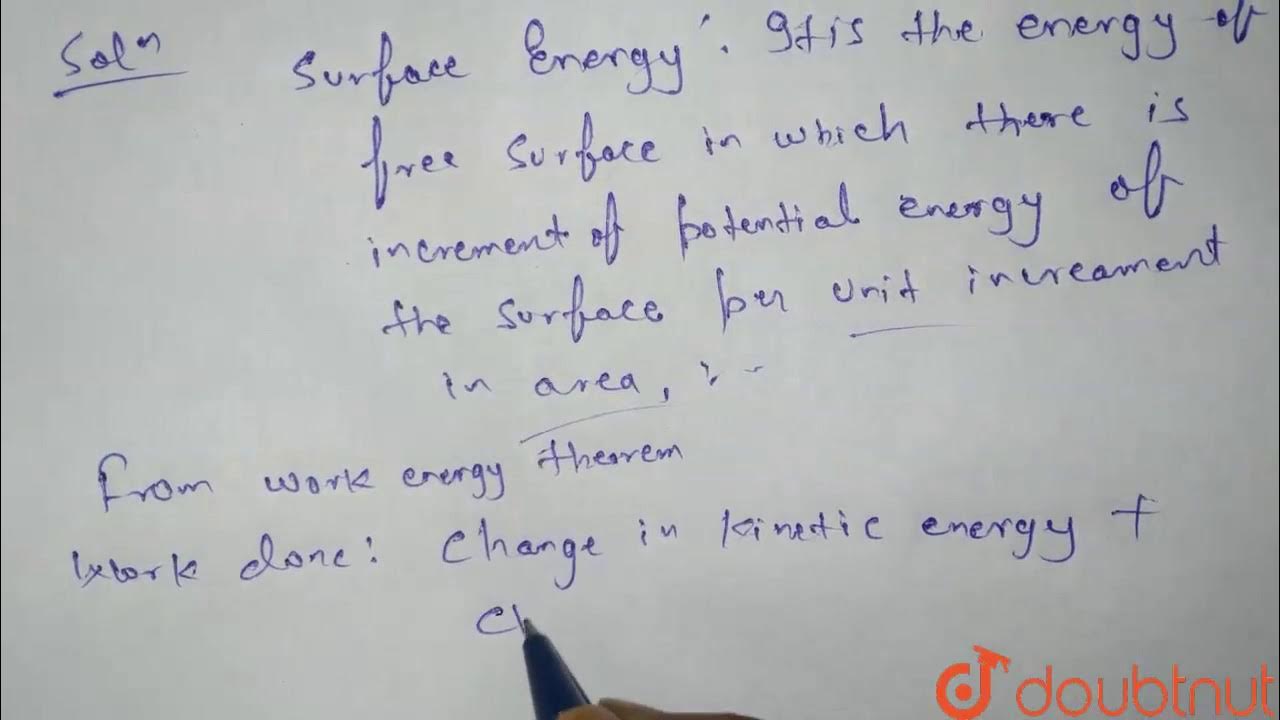 Solⁿ Surface Energy:- It is the energy of
free surface in which there is
increment of potential energy of
the surface per unit increament
in area, :-
From work energy theorem
Work done: Change in kinetic energy +
Ch
doubtnut